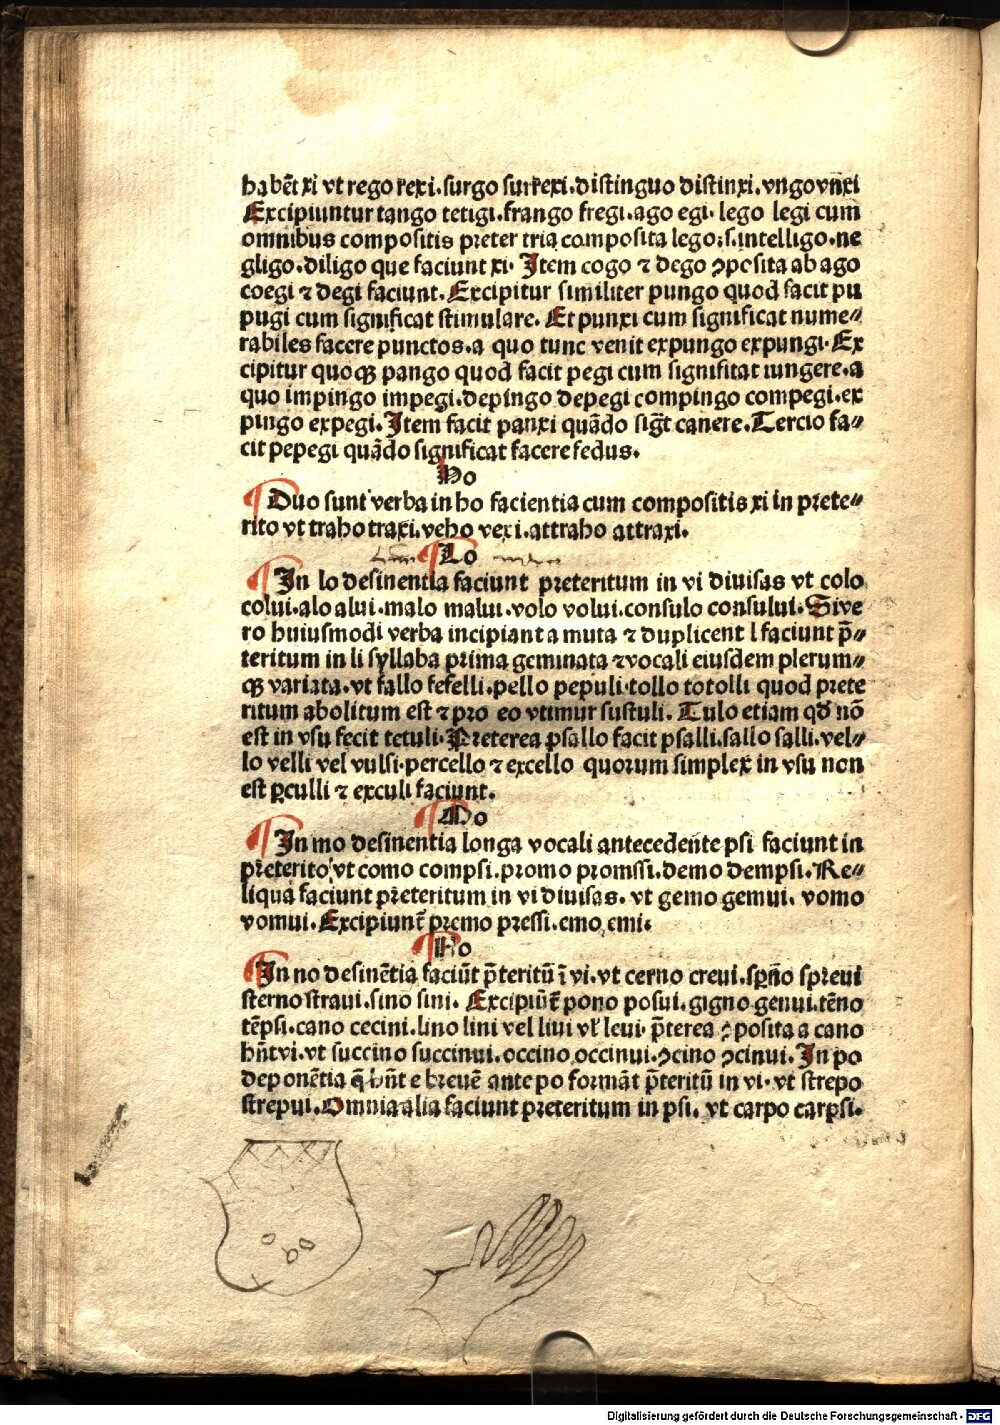 habēt xi vt rego rexi.surgo surrexi.distinguo distinxi.vngo vnxi
Excipiuntur tango tetigi.frango fregi.ago egi.lego legi cum
omnibus compositis preter tria composita lego:s.intelligo.ne
gligo.diligo que faciunt xi. Item cogo ⁊ dego ꝯposita ab ago
coegi ⁊ degi faciunt. Excipitur similiter pungo quod facit pu
pugi cum significat stimulare. Et punxi cum significat nume⸗
rabiles facere punctos.a quo tunc venit expungo expungi. Ex
cipitur quoqꝫ pango quod facit pegi cum signifitat iungere.a
quo impingo impegi.depingo depegi compingo compegi.ex
pingo expegi. Item facit panxi quādo sigt̄ canere. Tercio fa⸗
cit pepegi quādo significat facere fedus.
Ho
Duo sunt verba in ho facientia cum compositis xi in prete⸗
rito vt traho traxi.veho vexi.attraho attraxi.
Lo
In lo desinentia faciunt preteritum in vi diuisas vt colo
colui.alo alui.malo malui.volo volui.consulo consului. Si ve
ro huiusmodi verba incipiant a muta ⁊ duplicent l faciunt p̄⸗
teritum in li syllaba prima geminata ⁊ vocali eiusdem plerum⸗
qꝫ variata.vt fallo fefelli.pello pepuli.tollo totolli quod prete
ritum abolitum est ⁊ pro eo vtimur sustuli. Tulo etiam qd̄ nō
est in vsu fecit tetuli. Preterea psallo facit psalli.sallo salli.vel⸗
lo velli vel vulsi.percello ⁊ excello quorum simplex in vsu non
est ꝑculli ⁊ exculi faciunt.
Mo
In mo desinentia longa vocali antecedente psi faciunt in
preterito vt como compsi.promo promssi.demo dempsi. Re⸗
liqua faciunt preteritum in vi diuisas. vt gemo gemui. vomo
vomui. Excipiunt̄ premo pressi.emo emi.
No
In no desinētia faciūt p̄teritū ī vi.vt cerno creui.sꝑno spreui
sterno straui.sino sini. Excipiūt̄ pono posui.gigno genui.tēno
tēpsi.cano cecini.lino lini vel liui vl̄ leui. p̄terea ꝯposita a cano
hn̄t vi.vt succino succinui.occino occinui.ꝯcino ꝯcinui. In po
deponētia q̄ hn̄t e breuē ante po formāt p̄teritū in vi.vt strepo
strepui. Omnia alia faciunt preteritum in psi. vt carpo carpsi.
Digitalisierung gefördert durch die Deutsche Forschungsgemeinschaft - DFG